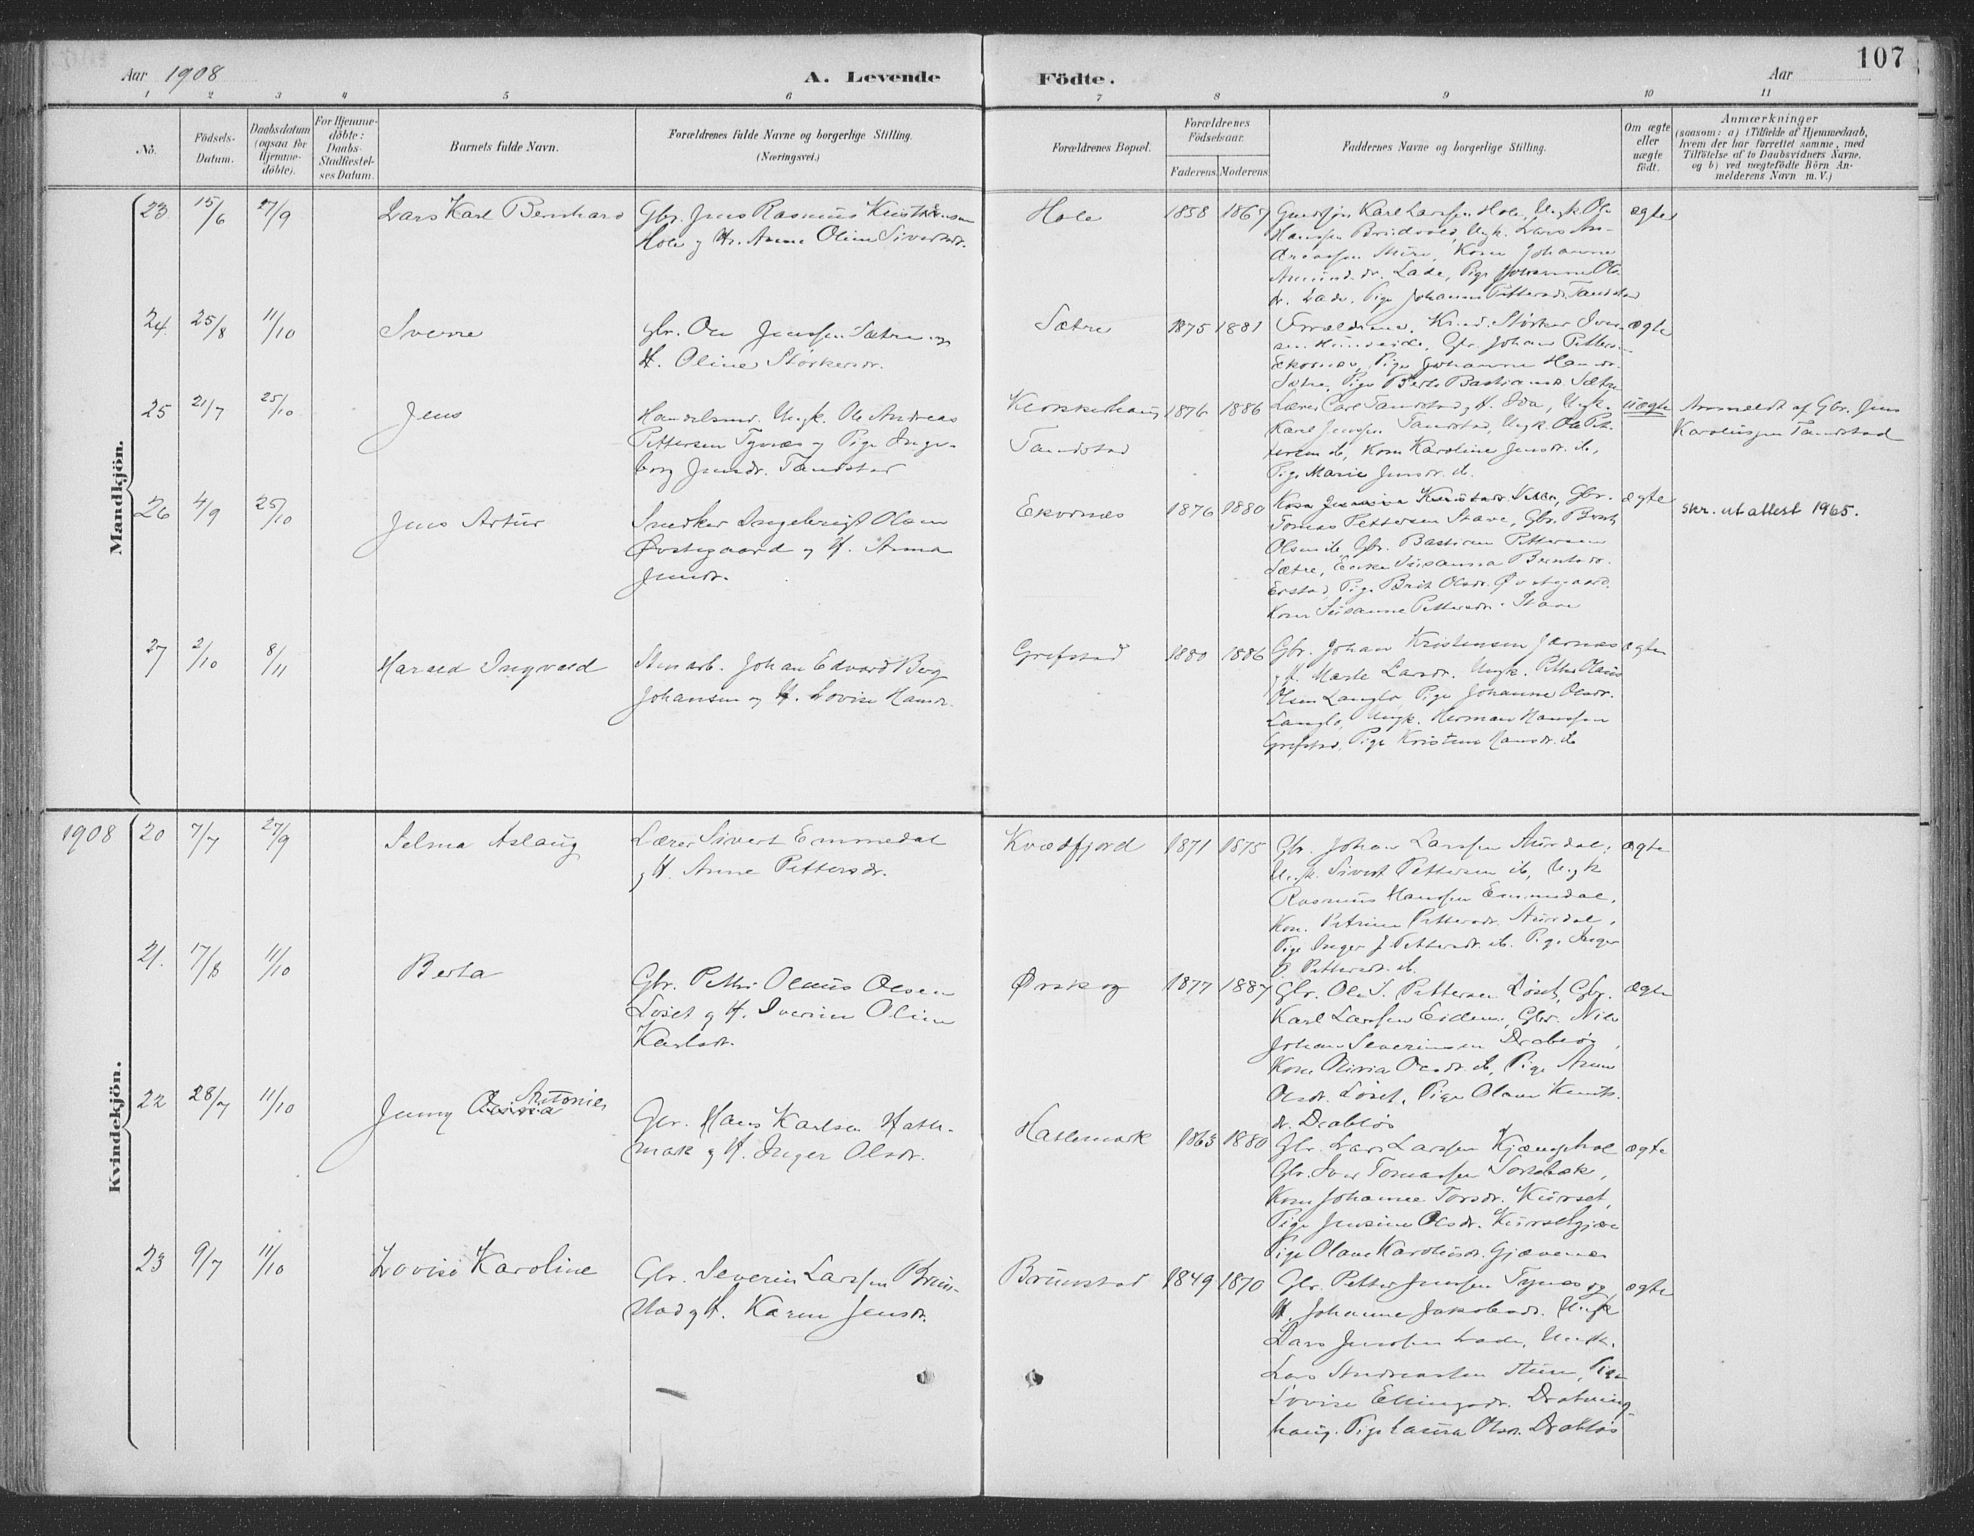 107
Aar 1908
A. Levende
Födte.
Aar
1 2 3 4 5 6 7 8 9 10 11
No.
Födsels-
Datum.
Daabsdatum
(ogsaa for
Hjemme-
döbte).
For Hjemme-
døbte:
Daabs-
Stadfæstel-
ses Datum.
Barnets fulde Navn.
Forældrenes fulde Navne og borgerlige Stilling.
(Næringsvei.)
Forældrenes Bopæl.
Forældrenes
Födselsaar.
Faderens. Moderens.
Faddernes Navne og borgerlige Stilling.
Om ægte
eller
uægte
födt.
Anmærkninger
(saasom: a) i Tilfælde af Hjemmedaab,
hvem der har forrettet samme, med
Tilföielse af to Daabsvidners Navne.
og b) ved uægtefödte Börn An-
melderens Navn m. V.)
Mandkjön.
23. 15/6 27/9
Lars Karl Bernhard
Gbr. Jens Rasmus Kristiansen
Hole og H. Anne Oline Sivertsdr.
Hole
1858 1867
Karl Larssen Hole, Ungk. Ole
Hanssen Brudvold, Ungk. Lars An-
dreassen Sture, Kone Johanne
Amundsdr. Lade, Pige Johanne Ols-
dr. Lade, Pige Johanne Pettersdr. Tandstad
ægte
24. 25/8 11/10
Sverre
Gbr. Ole Jenssen Sætre og
H. Oline Størkersdr.
Sætre
1875 1881
Forældrene, Størker Iver-
sen Hundeide, Gbr. Johan Petters-
Ekornes, Pige Johanne Hansdr.
Sætre, Pige Berte Bastiansdr. Sætre
ægte
25 21/7 25/10
Jens
Handelsmd. Ungk. Ole Andreas
Pettersen Tynes og Pige Inge-
borg Jensdr. Tandstad
Tandstad
1876 1886
Lærer Carl Tandstad og H. Ida, Ungk.
Karl Jenssen Tandstad, Ungk. Ole Pet-
tersen ib, Kone Karoline Jensdr. ib,
Pige Marie Jensdr. ib.
uægte
Anmeldt af Gbr. Jens
Karolussen Tandstad
26 4/9 25/10
Jens Artur
Snedker Ingebrigt Olsen
Øvstegaard og H. Anna
Jensdr.
Ekornæs
1876 1880
Kone Velle, Gbr.
Tomas Pettersen Stave, Gbr. Bernt
Olsen ib, Gbr. Bastian Pettersen
Sætre, Enke Susanna Berntsdr.
Erstad, Pige Berit Olsdr. Øvstegaard,
Kone Susanne Pettersdr. Stave
ægte
skr. ut attest 1965.
27 2/10 8/11
Harald Ingvald
Stenarb. Johan Edvard Berg
Johansen og H. Lovise Hansdr.
Grefstad
1880 1886
Gbr. Johan Kristensen Jarnes
og H. Marte Larsdr. Ungk. Petter Olaus
Olsen Langlo, Pige Johanne Olsdr.
Langlo, Ungk. Herman Hanssen
Grefstad, Pige Kristine Hansdr. ib
ægte
1908
Kvindekjön.
20 7/7 27/9
Selma Aslaug
Lærer Sivert Emmedal
og H. Anne Pettersdr.
Kvædfjord
1871 1875
Gbr. Johan Larssen Aurdal,
Ungk. Sivert Pettersen ib, Ungk
Rasmus Hanssen Emmedal,
Kone Petrine Pettersdr. Aurdal,
Pige Inger J. Pettersdr. ib. Pige Inger
P. Pettersdr. ib.
ægte
21. 17/8 11/10
Berta
Gbr. Petter Olaus Olsen
Løset og H. Iverine Oline
Karlsdr.
Ørskog
1877 1887
Gbr. Ole S. Pettersen Løset, Gbr.
Karl Larssen Eidem, Gbr. Nils
Johan Severinsen Drabløs,
Kone Olivia Olsdr. ib, Pige Anne
Olsdr. Løset, Pige Olave Knuts-
dr. Drabløs
ægte
22 28/7 11/10
Jenny Olivia Antonie
Gbr. Hans Karlsen Hatle-
mark og H. Inger Olsdr.
Hatlemark
1863 1880
Gbr. Lars Larssen
Gbr. Iver Tomassen
Kone Johanne Torsdr. Kurset,
Pige Jensine Olsdr. Kursetgjære
Pige Olave Karolusdr. Gjævenes
ægte
23 9/7 11/10
Lovise Karoline
Gbr. Severin Larssen Brun-
stad og H. Karen Jensdr.
Brunstad
1849 1870
Gbr. Petter Jenssen Tynes og
H. Johanne Jakobsdr. Ungk
Lars Jenssen Lade, Ungk.
Lars Andreassen Sture, Pige
Lovise Ellingsdr. Drotning-
haug. Pige Laura Olsdr. Drabløs
ægte